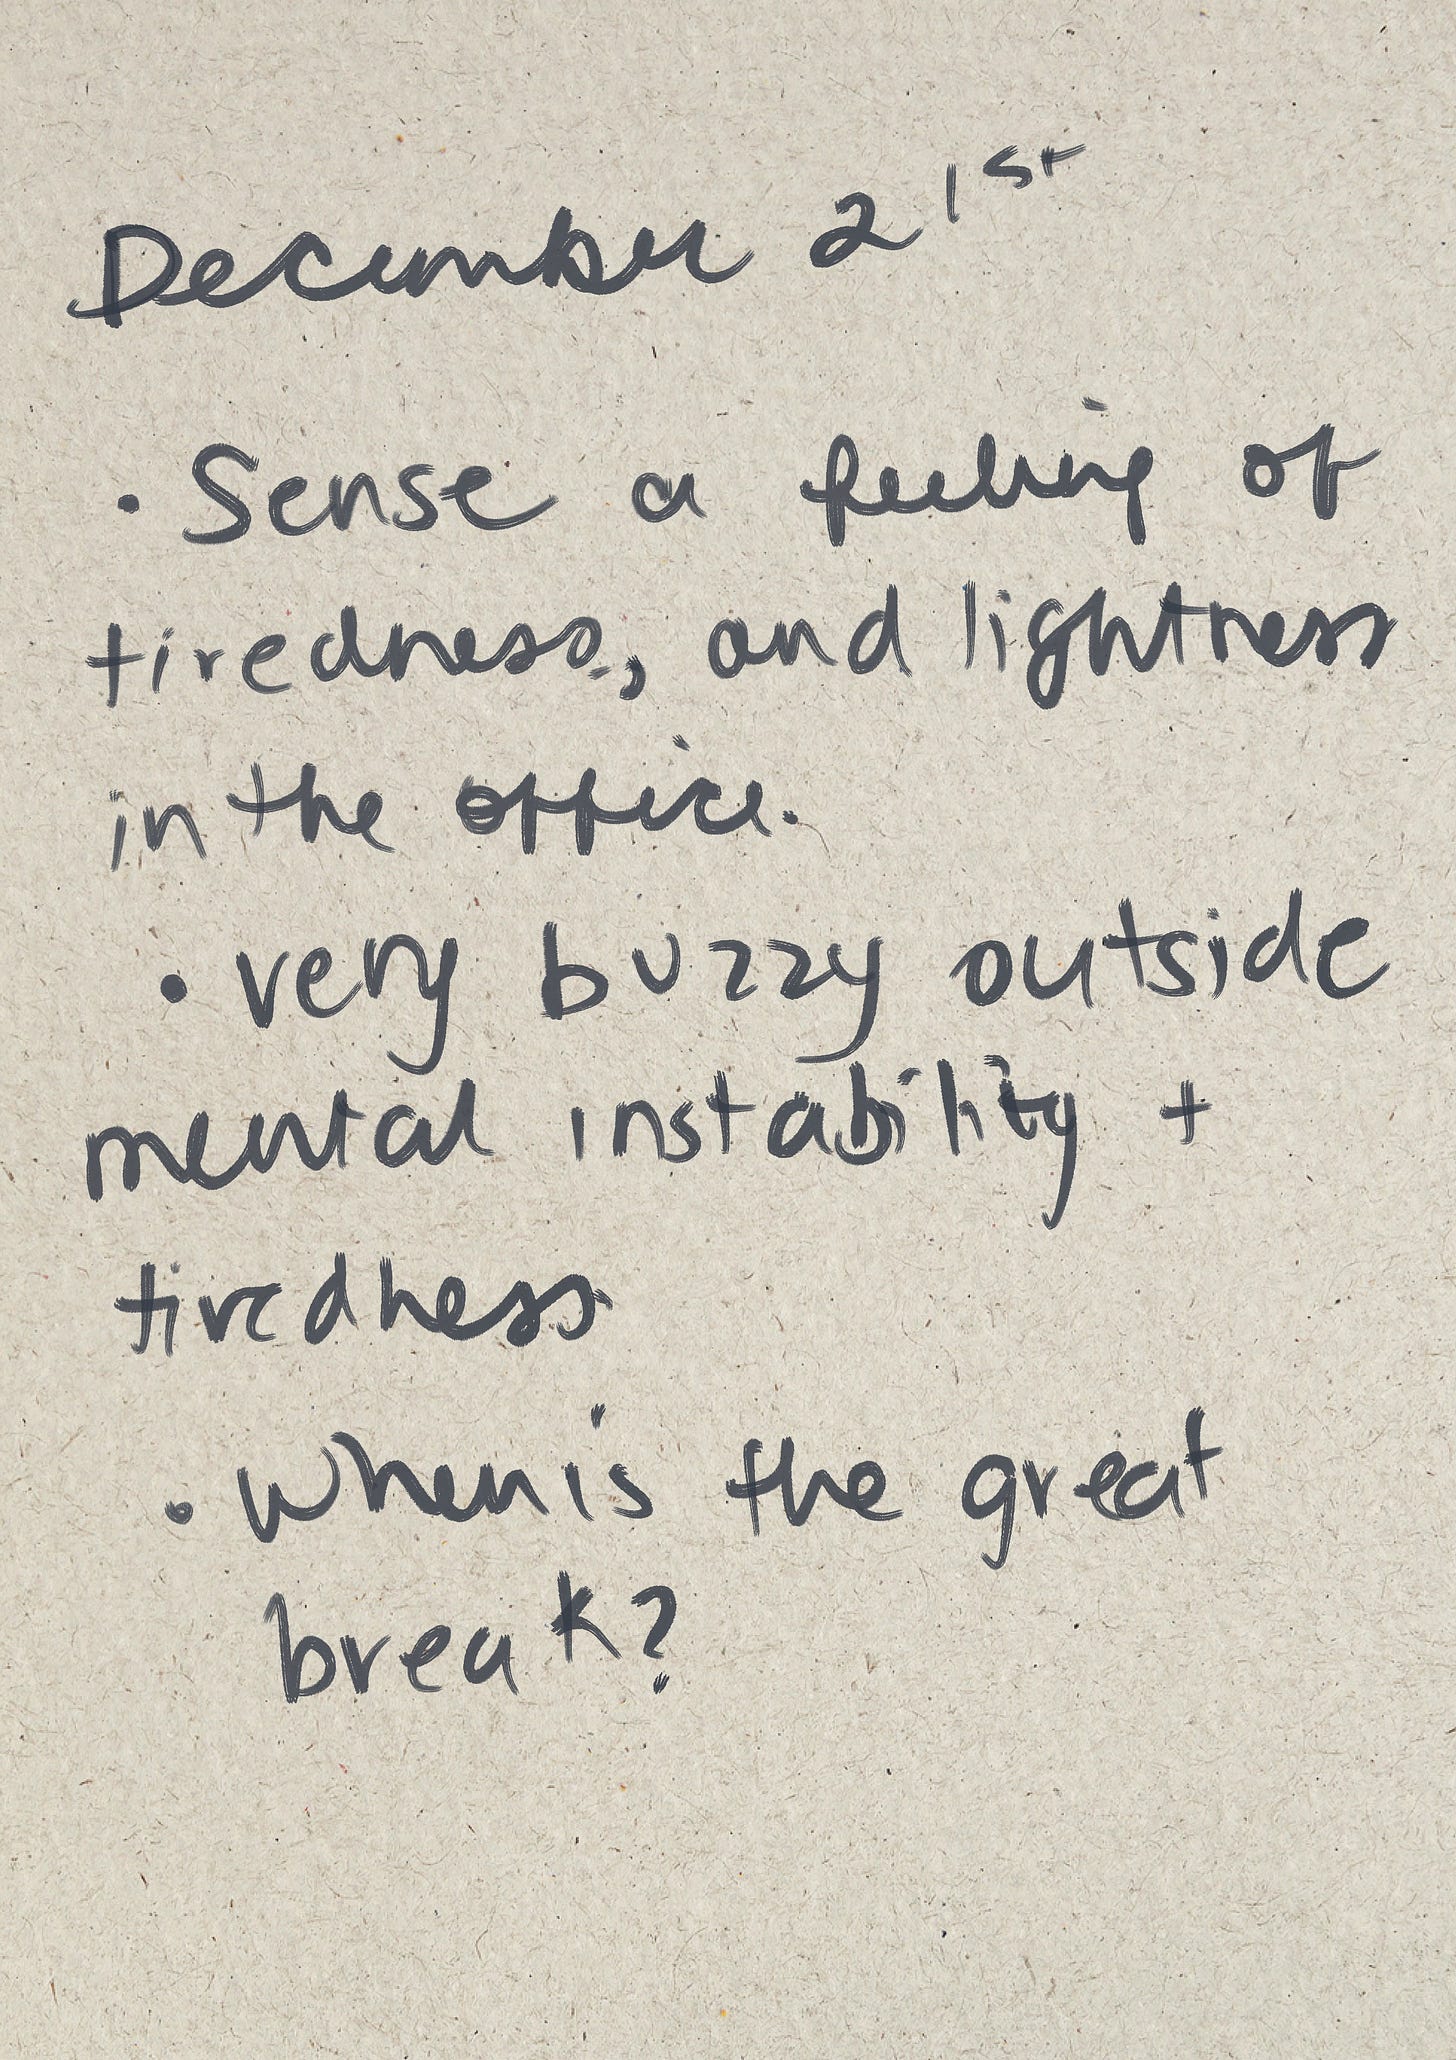 December 21st
• Sense a feeling of
tiredness, and lightness
in the office.
• very buzzy outside
mental instability +
tiredness
• When is the great
break?